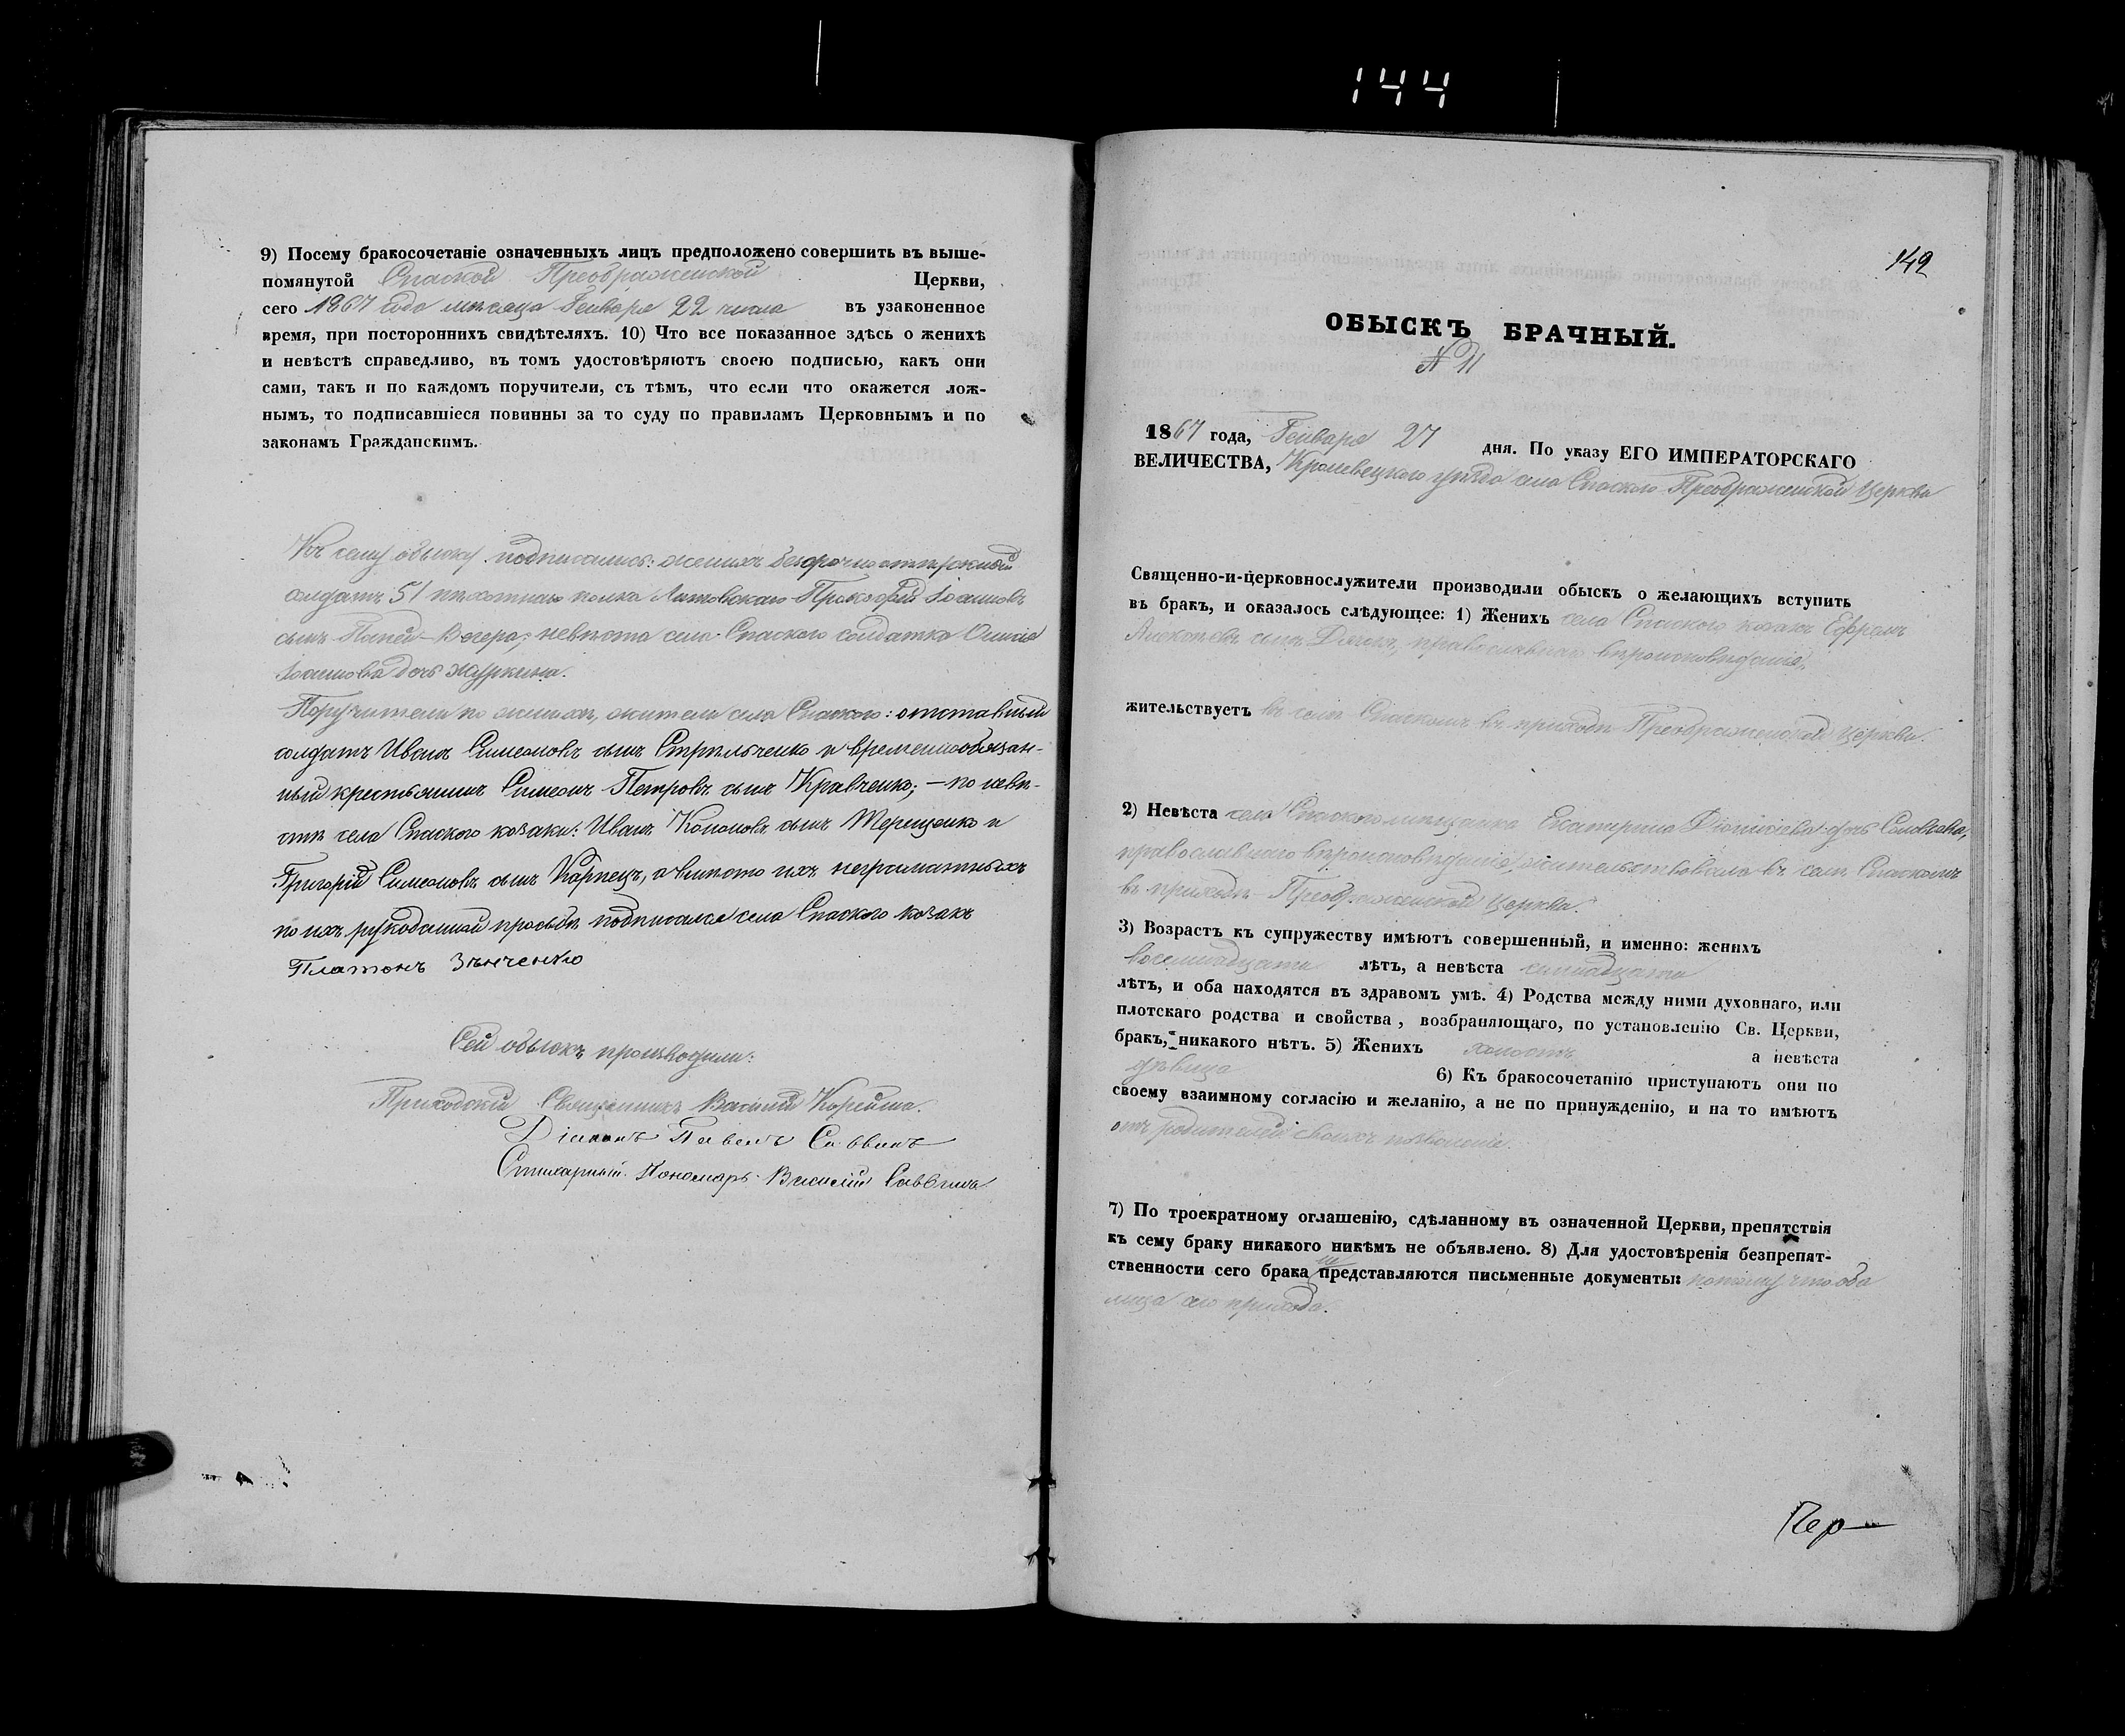 144
9) Посему бракосочетаніе означенныхъ лицъ предположено совершить въ выше-
помянутой Спаской Преображенской Церкви,
сего 1867 года мѣсяца Генваря 22 числа въ узаконенное
время, при постороннихъ свидѣтеляхъ. 10) Что все показанное здѣсь о женихѣ
и невѣстѣ справедливо, въ томъ удостовѣряютъ своею подписью, какъ они
сами, такъ и по каждомъ поручители, съ тѣмъ, что если что окажется лож-
нымъ, то подписавшіеся повинны за то суду по правиламъ Церковнымъ и по
законамъ Гражданскимъ.
Къ сему обыску подписались: женихъ безсрочноотпускный
солдатъ 51 пѣхотнаго полка Литовскаго Прокофій Іоанновъ
сынъ Вечера; невѣста села Спаского солдатка
Іоаннова дочь Журкина.
Поручители по женихѣ, жители села Спаского: отставный
солдатъ Иванъ Симеоновъ сынъ Стрѣльченко и временнообязан-
ный крестьянинъ Симеонъ Петровъ сынъ Кравченко; — по невѣ-
стѣ села Спаского козаки: Иванъ Кононовъ сынъ Терещенко и
Григорій Симеоновъ сынъ Карпецъ, а вмѣсто ихъ неграмотныхъ
по ихъ рукоданной просьбѣ подписался села Спаского козакъ
Платонъ Зѣнченко
Сей обыскъ производили:
Приходскій Священникъ Василій Корейша.
Діаконъ Павелъ Саввинъ
Стихарный Пономарь Василій Саввинъ
149
ОБЫСКЪ БРАЧНЫЙ.
N 11
1867 года, Генваря 27 дня. По указу ЕГО ИМПЕРАТОРСКАГО
ВЕЛИЧЕСТВА, Кролевецкого уѣзда села Спаского Преображенской Церкви
Священно-и-церковнослужители производили обыскъ о желающихъ вступить
въ бракъ, и оказалось слѣдующее: 1) Женихъ села Спаского козакъ Ефремъ
сынъ православнаго вѣроисповѣданія,
жительствуетъ въ селѣ Спаскомъ въ приходѣ Преображенской Церкви.
2) Невѣста села Спаского мѣщанка Екатерина дочь
православнаго вѣроисповѣданія, жительствовала въ селѣ Спаскомъ
въ приходѣ Преображенской Церкви.
3) Возрастъ къ супружеству имѣютъ совершенный, и именно: женихъ
восемнадцати лѣтъ, а невѣста семнадцати
лѣтъ, и оба находятся въ здравомъ умѣ. 4) Родства между ними духовнаго, или
плотскаго родства и свойства, возбраняющаго, по установленію Св. Церкви,
бракъ, никакого нѣтъ. 5) Женихъ холостъ а невѣста
дѣвица 6) Къ бракосочетанію приступаютъ они по
своему взаимному согласію и желанію, а не по принужденію, и на то имѣютъ
отъ родителей своихъ позволеніе.
7) По троекратному оглашенію, сдѣланному въ означенной Церкви, препятствія
къ сему браку никакого никѣмъ не объявлено. 8) Для удостовѣренія безпрепят-
ственности сего брака не представляются письменные документы: потому что оба
лица сего прихода.